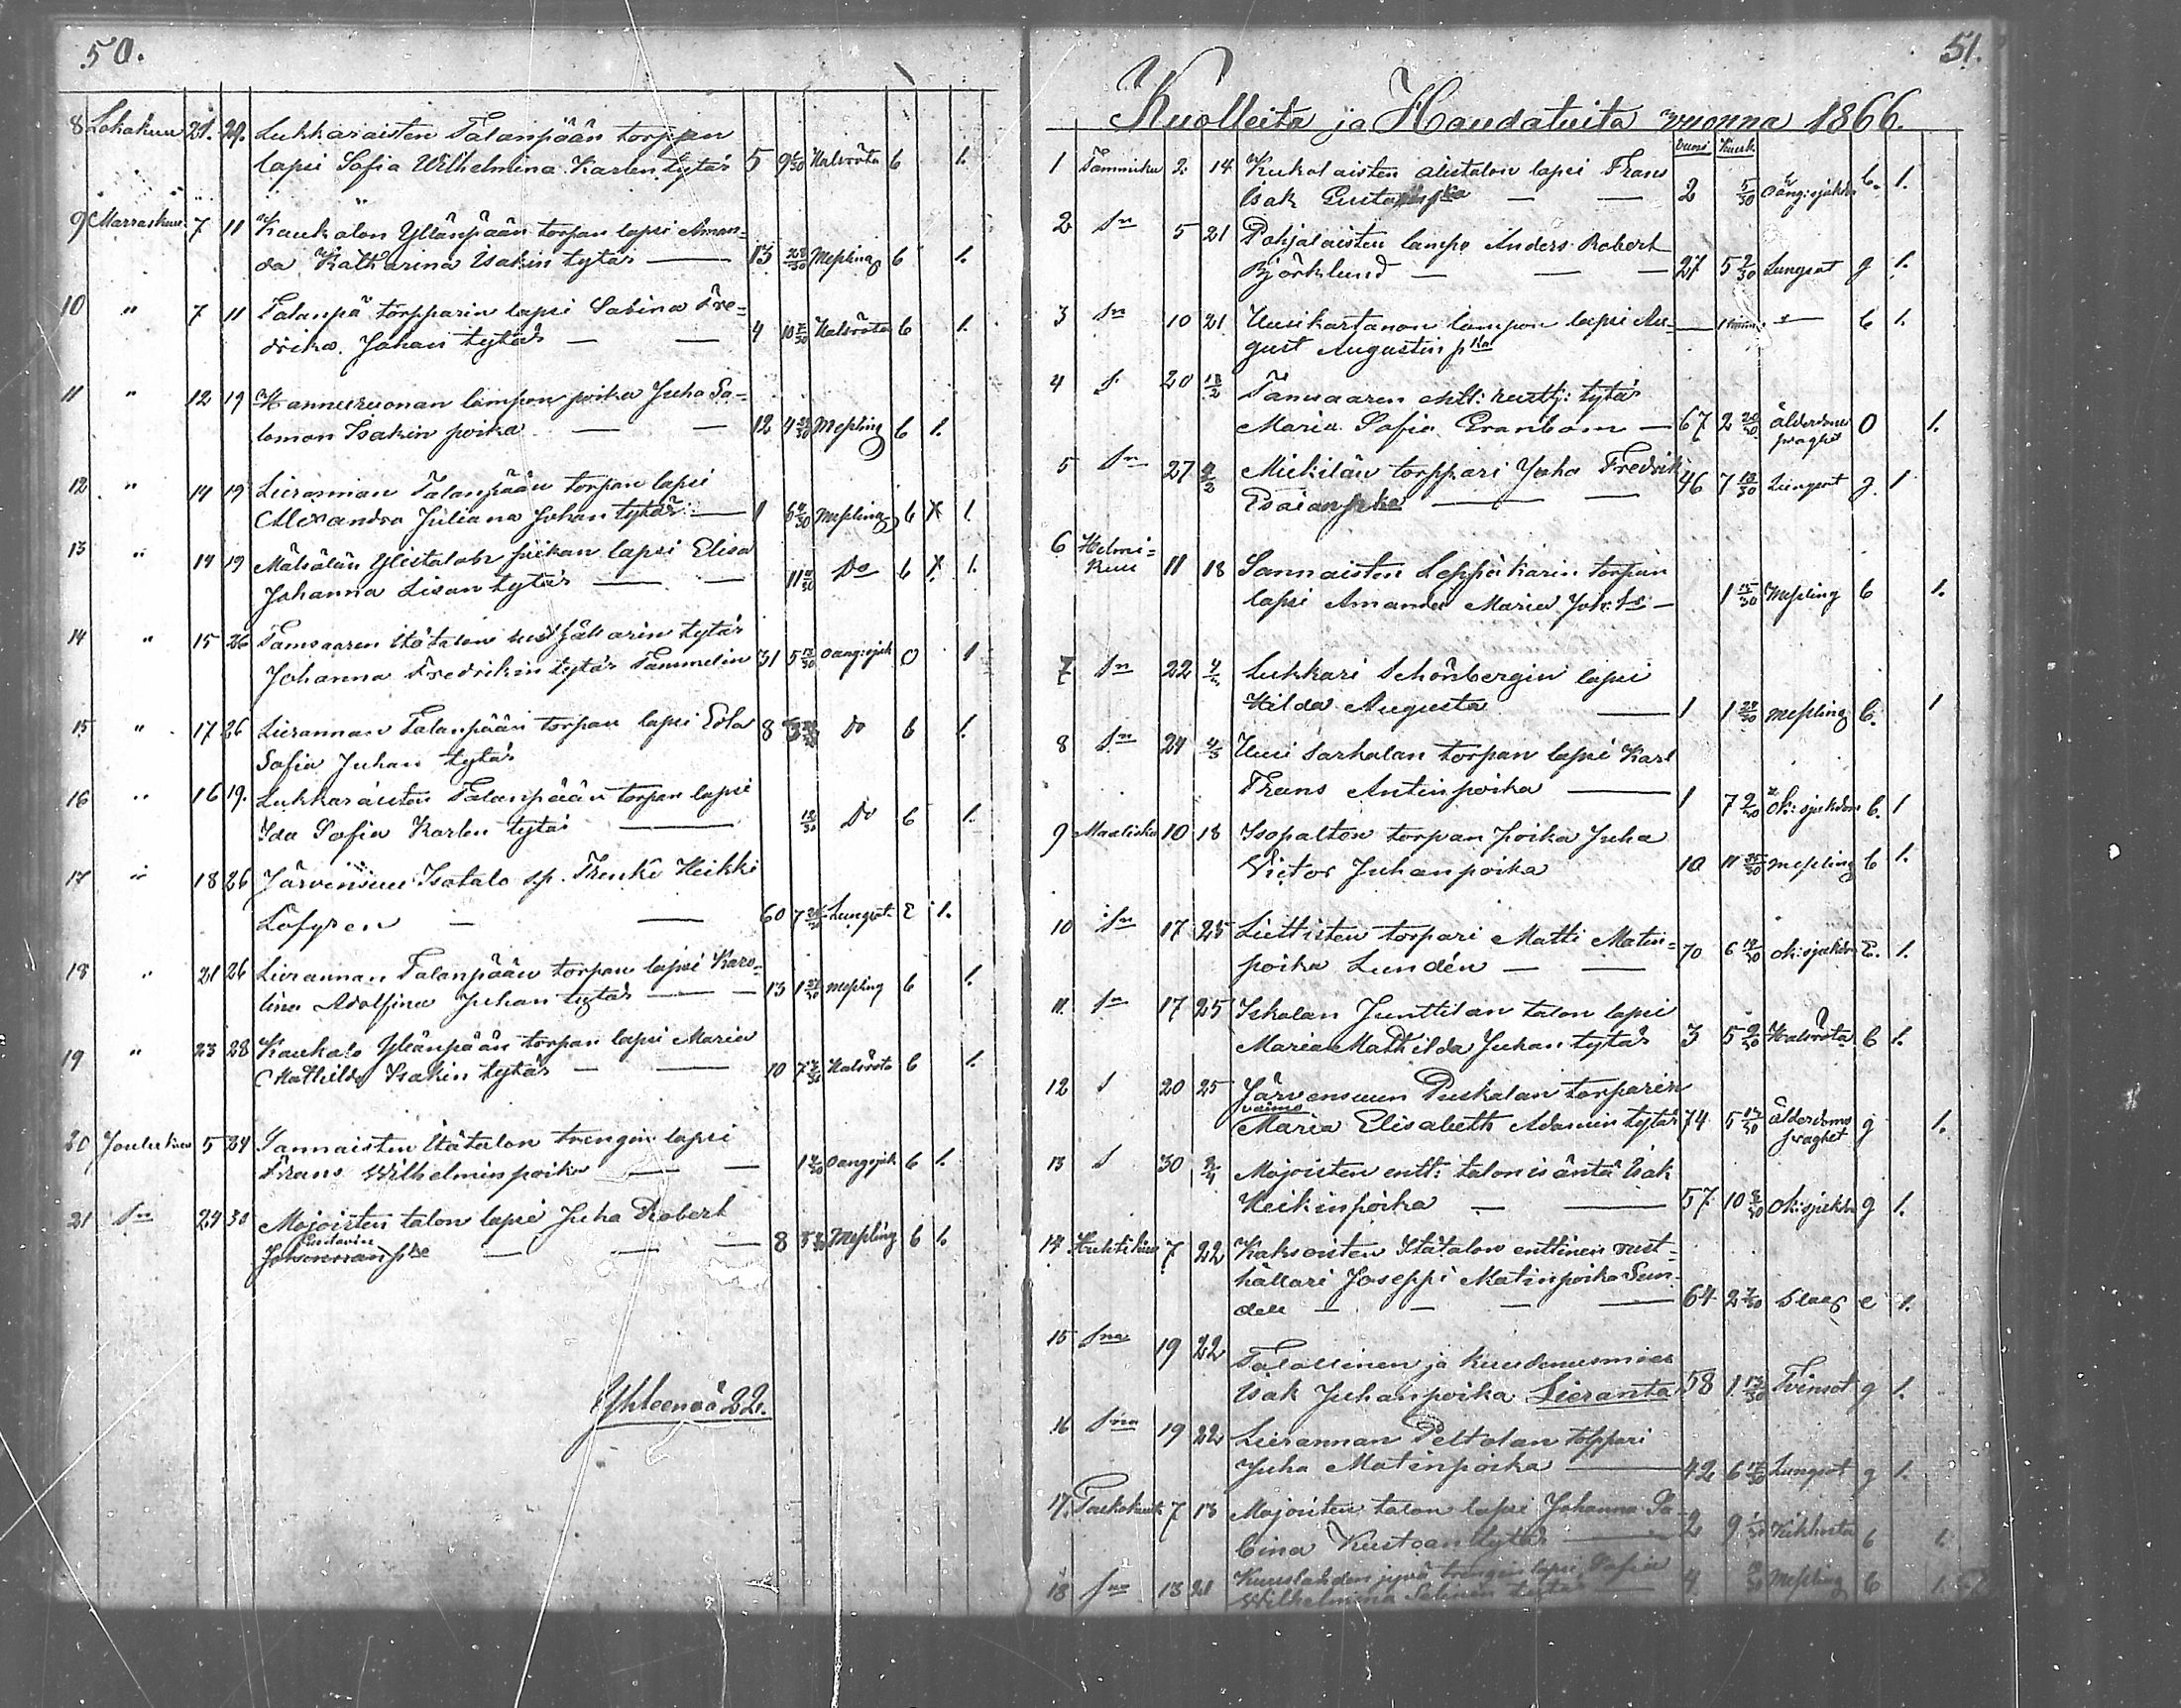 50.
8 Lokakuu 21. 29. Lukkaraisten Talanpään torpan
lapsi Sofia Wilhelmina Karlen tytär 5 9 6/30 Halsröta b 1.
9 Marraskuu 7 11 Kaukolan Yllänpään torpan lapsi Aman-
da Katharina Isakin tytär — 13 28/30 Meßling b 1.
10 " 7 11 Talanpä torpparin lapsi Sabina Fre-
drika Johan tytär — — 4 10 Halsröta b 1.
11 " 12 19 Hannukuonan lampon poika Juho Sa-
lomon Isakin poika — — 12 4 Meßling b 1.
12 " 14 19 Lierannan Talanpään torpan lapsi
Alexandra Juliana Johan tytär — 1 Meßling b X 1
13 " 14 19 Mälsälän Ylistalon piikan lapsi Elisa
Johanna Lisan tytär — — 11 Do b X. 1.
14 " 15 26 Tamsaaren Itätalon tytär
Johanna Fredrikin tytär Tammelin 31 5 13/30 oäng:sjuk O 1
15 " 17 26 Lierannan Talanpään torpan lapsi Eva
Sofia Juhan tytär 8 Do b 1.
16 " 16 19. Lukkaraisten Talanpään torpan lapsi
Ida Sofia Karlen tytär — 12/30 Do b 1.
17 " 18 26 Järvensuu Isotalo sp. Trenki Heikki
Löfgren — — 60 7 Lungsot E 1.
18 " 21 26 Lierannan Talanpään torpan lapsi Karo-
lina Adolfina Juhan tytär — 13 1 Meßling b 1.
19 " 23 28 Kaukolo Yllänpään torpan lapsi Maria
Mathilda Isakin tytär — — 10 7 Halsröta b 1.
20 Joulukuu 5 24 Sannaisten Itätalon trengin lapsi
Frans Wilhelmin poika — — 1 oängsjuk b 1.
21 Sn 24 30 Majoisten talon lapsi Juha Robert
Kustavin
Johannan pka — — — 8 Meßling b 1.
Yhteensä 22.
51.
Kuolleita ja Haudatuita vuonna 1866.
Vuosi Kuuk.
1 Tammiku 2. 14 Kukolaisten alistalon lapsi Frans
Isak Gusta pka — — 2 5/30 oäng:sjukd b. 1.
2 Sn 5 21 Pohjalaisten lampo Anders Robert
Björklund — — — 27 5 2/30 Lungsot g 1.
3 Sn 10 21 Uusikartanon lampon lapsi Au-
gust Augustin pka — b 1.
4 S 20 Tamsaaren entt: rustt: tytär
Maria Sofia Granbom — 67 2 Ålderdoms
svaghet O 1.
5 Sn 27 Mickilän torppari Juho Fredrik
Esaian pka — — 46 7 18/30 Lungsot g. 1
6 Helmi-
kuu 11 18 Sannaisten Leppäkarin torpan
lapsi Amanda Maria Joh: tr — 1 15/30 Meßling b 1.
7 Sn 22 Lukkari Schönbergin lapsi
Hilda Augusta — 1 1 28/30 Meßling b. 1
8 Sn 24 4/3 Uusi Sarkalan torpan lapsi Karl
Frans Antinpoika — 1 7 2/30 ok: sjukdom b. 1
9 Maalisku 10 18 Isopalton torpan poika Juha
Victor Juhanpoika 10 11 Meßling b 1.
10 Sn 17 25 Liettisten torpari Matti Matin-
poika Lundén — — 70 6 ok:sjukdm E. 1.
11 Sn 17 25 Iskalan Junttilan talon lapsi
Maria Mathilda Juhan tytär 3 5 Halsröta b 1.
12 S 20 25 Järvensuun Puskalan torparin
vaimo
Maria Elisabeth Adamin tytär 74 5 Ålderdoms
svaghet g 1.
13 S 30 Majoisten entt: talonisäntä Isak
Heikinpoika — — 57 10 ok:sjukdm g 1.
14 Huhtikuu 7 22 Kaksoisten Itätalon enttinen rust-
hållari Joseppi Matinpoika Sun-
dell — — — — 64 2 Slag e 1.
15 Sna 19 22 Talollinen ja kuudennusmies
Isak Juhanpoika Lieranta 58 1 13/30 Tvinsot g 1.
16 Sna 19 22 Lierannan Peltolan torppari
Juha Matinpoika — 42 6 Lungsot g 1.
17. Toukokuu 7 13 Majoisten talon lapsi Johanna Sa-
bina Kustaantytär — 2 9 Kikhosta b 1.
18 Sna 13 21 trengin lapsi Sofia
Wilhelmina tytär 4 Meßling b 1.